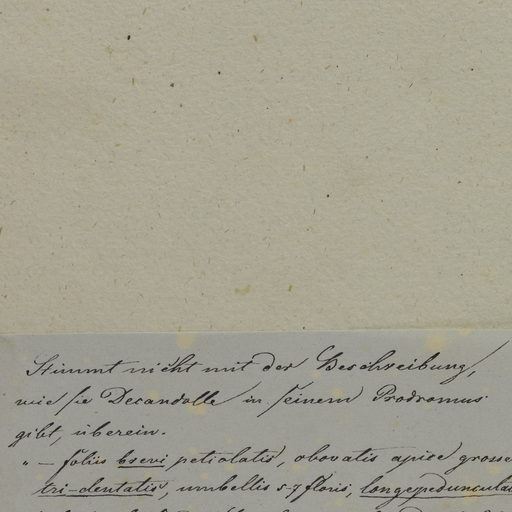 Stimmt nicht mit der Beschreibung,
wie sie Decandolle in seinem Prodromus
gibt, überein.
„ — foliis brevi petiolatis, obovatis apice grosse
tri-dentatis, umbellis 5-7 floris, longepeduncula